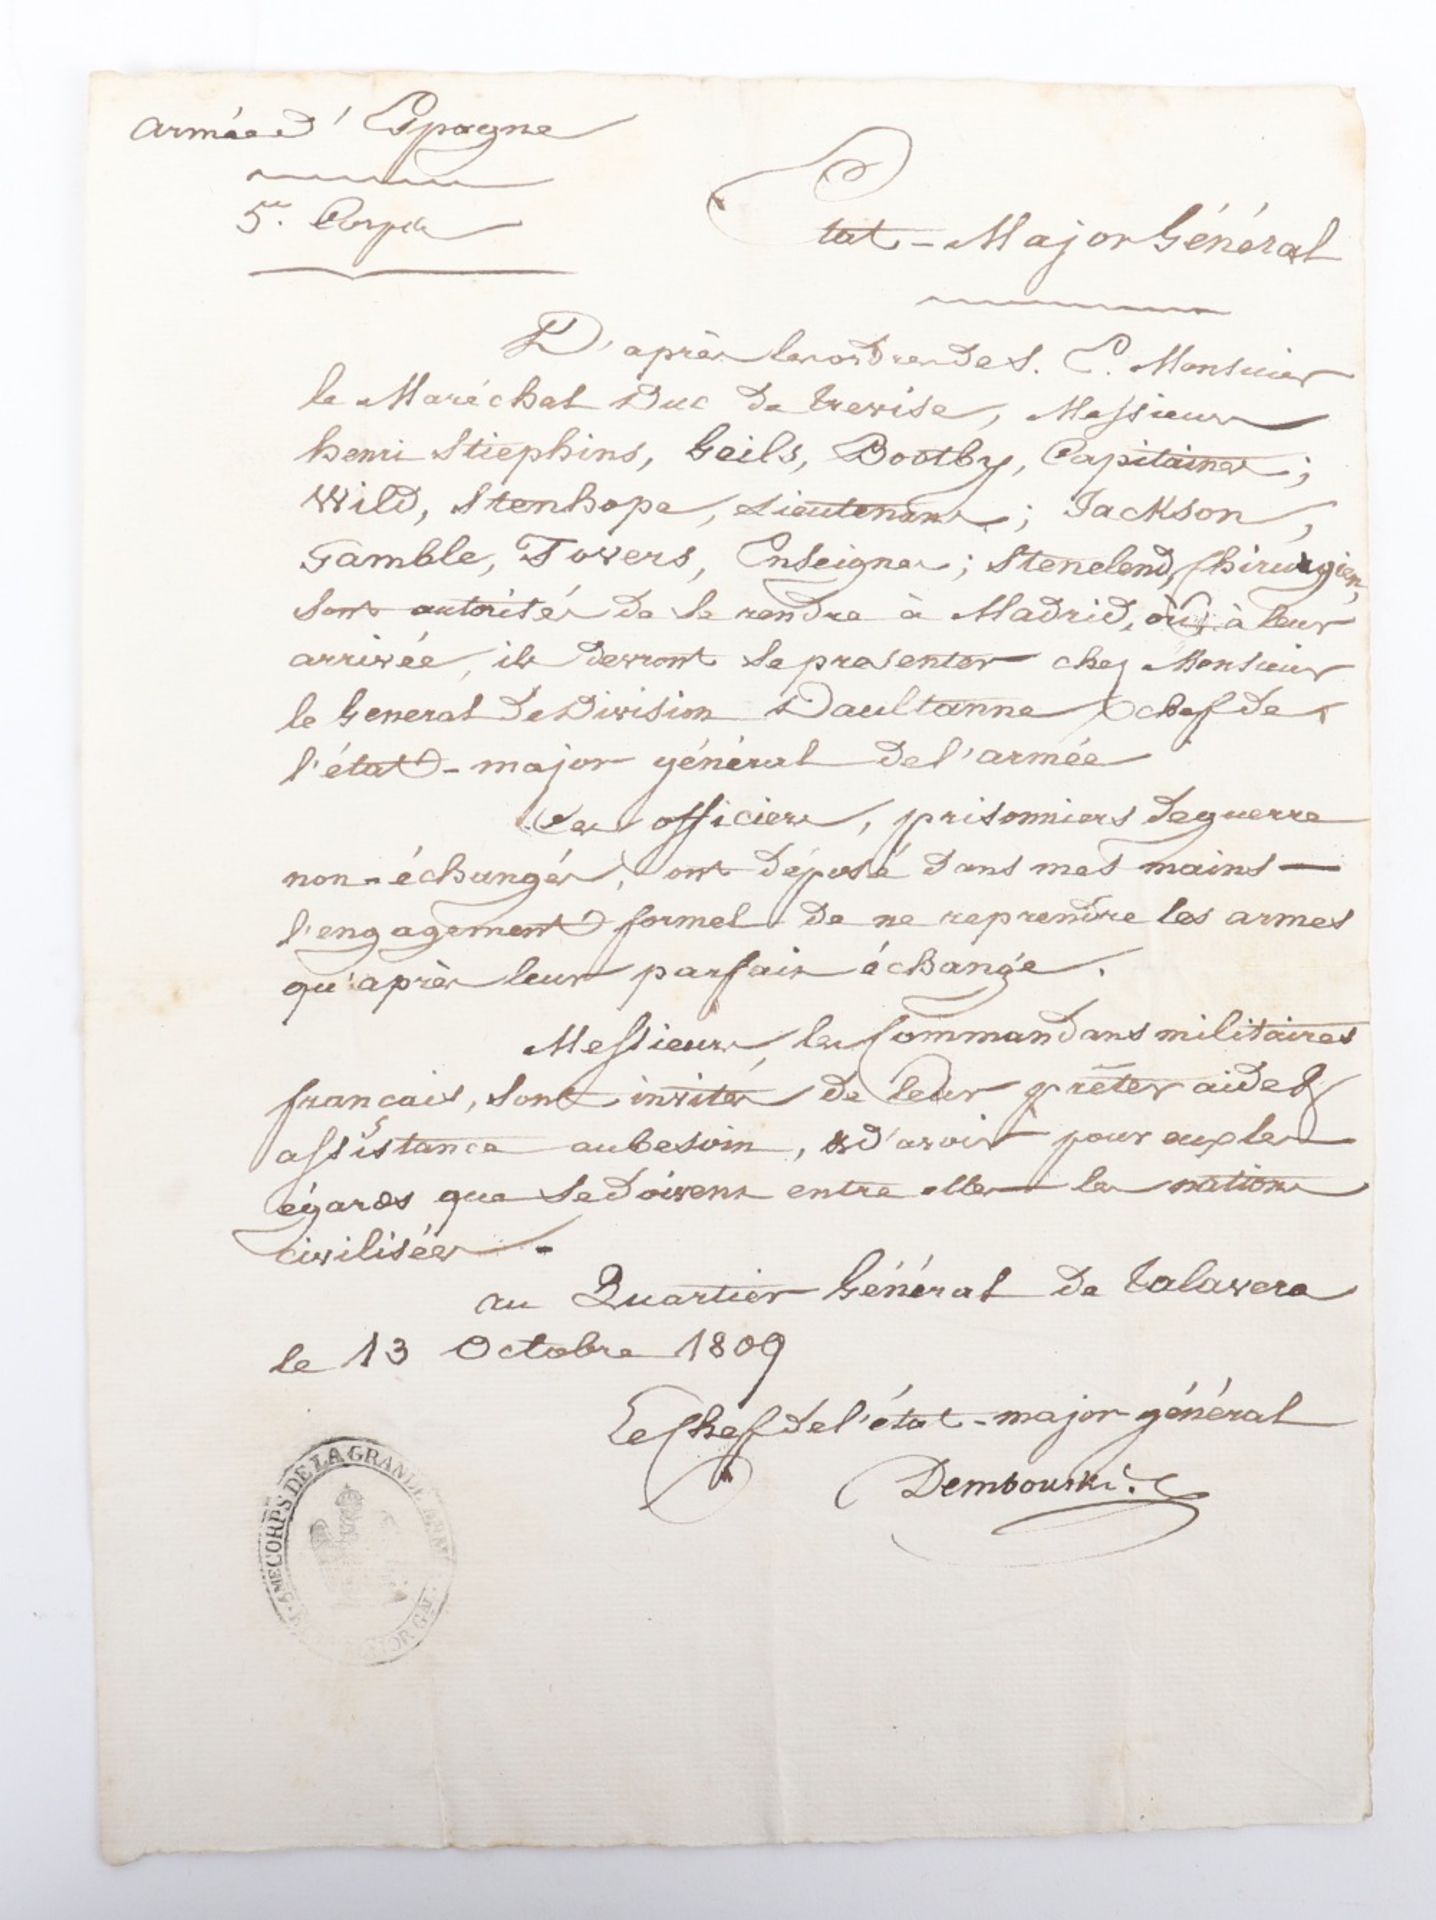 armée d'Espagne
5e. Corps
Etat-Major Général
D'après les ordres de S. E. Monsieur
le Maréchal Duc de trevise, Messieurs
henri Stiephins, Geils, Bootby, Capitaines;
Wild, Stenhope, Lieutenans; Jackson,
Gamble, Towers, Enseignes; Stenelend, Chirurgien,
sont autorisés de se rendre à Madrid, où, à leur
arrivée, ils devront se presenter chez Monsieur
le Général de Division Daultanne chef de
l'état-major général de l'armée
Ces officiers, prisonniers de guerre
non-échangés, ont déposé dans mes mains
l'engagement formel de ne reprendre les armes
qu'après leur parfait échange.
Messieurs les Commandans militaires
français, sont invités de leur prêter aide &
assistance au besoin, & d'avoir pour eux les
égards que se doivent entre elles les nations
civilisées.
au Quartier Général de talavera
le 13 Octobre 1809
Le Chef de l'état-major général
Dembouski.
5MECORPS DE LA GRANDE ARM
JOR GAL